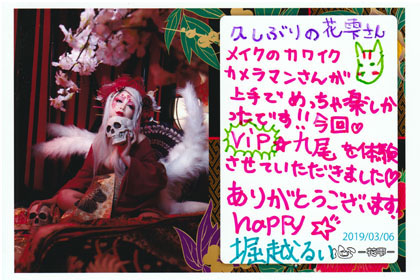 久しぶりの花雫さん
メイクのカワイク
カメラマンさんが
上手でめっちゃ楽しか
ったです!!今回♡
VIP☆九尾を体験
させていただきました♡
ありがとうございます!
happy☆
堀越るい
2019/03/06
―花雫―